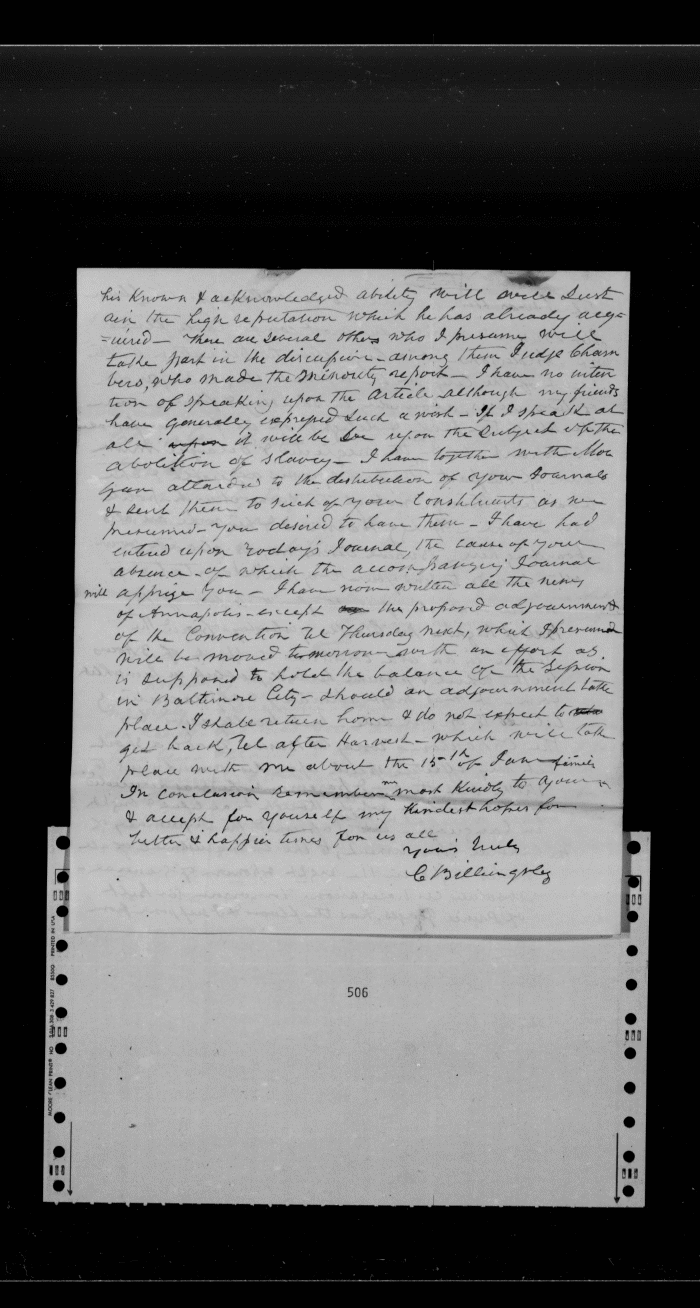 his Known & acknowledged ability will well Sust
ain the high reputation which he has already acq=
=uired — There are several others who I presume will
take part in the discussion - among them Judge Cham
bers, who made the Minority report — I have no inten
tion of speaking upon the Article although my friends
have generally expressed such a wish — If I speak at
all it will be upon the Subject of the
abolition of Slavery — I have together with Mor
gan attended to the distribution of your Journals
& sent them to such of your Constituents as we
presumed you desired to have them — I have had
entered upon today's Journal, the cause of your
absence - of which the accompanying Journal
will apprize you — I have now written all the news
of Annapolis - except the proposed adjournment
of the Convention til Thursday next, which I presume
will be moved tomorrow with an effort as
is supposed to hold the balance of the Session
in Baltimore City — Should an adjournment take
place I shall return home & do not expect to
get back, til after Harvest — which will take
place with me about the 15th of June
In conclusion remember me most Kindly to your family
& accept for yourself my Kindest hopes for
better & happier times for us all
Yours truly
C Billingsley
506
MOORE CLEAN PRINT
PRINTED IN USA